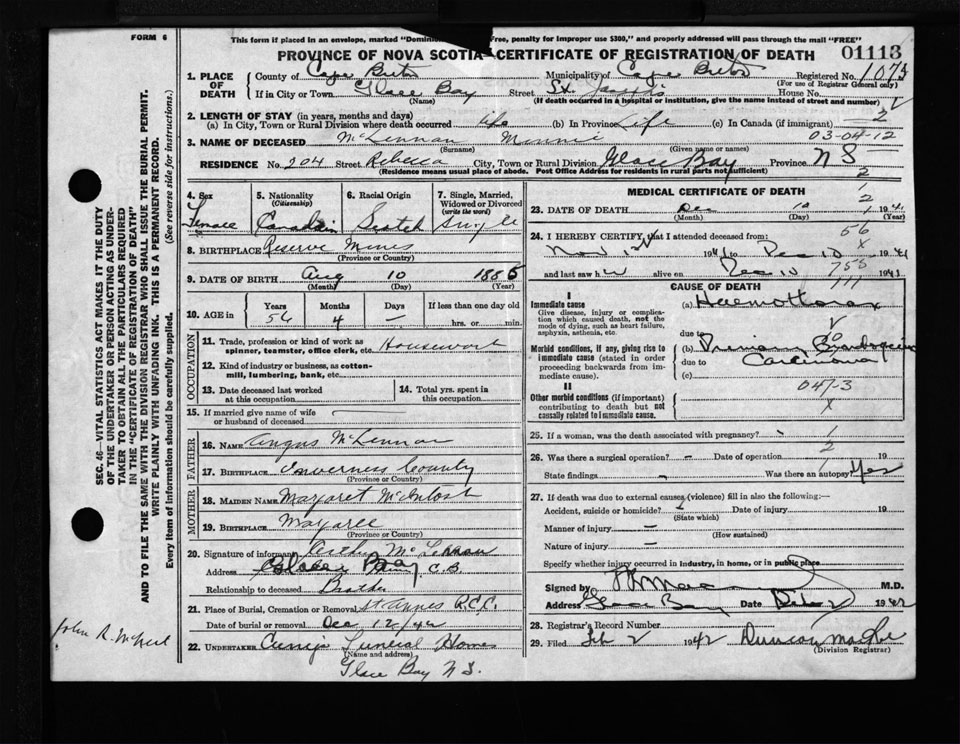 FORM 6
This form if placed in an envelope, marked "Dominion Free, penalty for improper use $300," and properly addressed will pass through the mail "FREE"
PROVINCE OF NOVA SCOTIA—CERTIFICATE OF REGISTRATION OF DEATH 01113
1. PLACE OF DEATH County of Cape Breton Municipality of Cape Breton Registered No. 1073
(For use of Registrar General only)
If in City or Town Glace Bay Street St. Joseph's House No.
(Name) (If death occurred in a hospital or institution, give the name instead of street and number)
2. LENGTH OF STAY (in years, months and days) 2
(a) In City, Town or Rural Division where death occurred life (b) In Province Life (c) In Canada (if immigrant)
03-04-12
3. NAME OF DECEASED McLennan Minnie
(Surname) (Given name or names)
RESIDENCE No. 204 Street Rebecca City, Town or Rural Division Glace Bay Province N S
(Residence means usual place of abode. Post Office Address for residents in rural parts not sufficient) 2
4. Sex Female
5. Nationality (Citizenship) Canadian
6. Racial Origin Scotch
7. Single, Married, Widowed or Divorced (write the word) Single
8. BIRTHPLACE Reserve Mines
(Province or Country)
9. DATE OF BIRTH Aug 10 1885
(Month) (Day) (Year)
10. AGE in Years Months Days If less than one day old
56 4 — hrs. or min.
OCCUPATION
11. Trade, profession or kind of work as spinner, teamster, office clerk, etc. Housework
12. Kind of industry or business, as cotton-mill, lumbering, bank, etc.
13. Date deceased last worked at this occupation
14. Total yrs. spent in this occupation
15. If married give name of wife or husband of deceased
FATHER
16. NAME Angus McLennan
17. BIRTHPLACE Inverness County
(Province or Country)
MOTHER
18. MAIDEN NAME Margaret McIntosh
19. BIRTHPLACE Margaree
(Province or Country)
20. Signature of informant McLennan
Address Glace Bay C.B.
Relationship to deceased Brother
21. Place of Burial, Cremation or Removal St Annes R.C.C.
Date of burial or removal Dec 12/42
22. UNDERTAKER Funeral Home
(Name and address)
Glace Bay N S.
MEDICAL CERTIFICATE OF DEATH
23. DATE OF DEATH Dec 10 1941
(Month) (Day) (Year)
24. I HEREBY CERTIFY, that I attended deceased from: 56
Nov 1941 to Dec 10 1941
and last saw h alive on Dec 10 1941
CAUSE OF DEATH
I
Immediate cause (a)
Give disease, injury or complication which caused death, not the mode of dying, such as heart failure, asphyxia, asthenia, etc.
due to
Morbid conditions, if any, giving rise to immediate cause (stated in order proceeding backwards from immediate cause). (b)
due to Carcinoma
(c)
II
047-3
Other morbid conditions (if important) contributing to death but not causally related to immediate cause. x
25. If a woman, was the death associated with pregnancy?
26. Was there a surgical operation? – Date of operation 19
State findings Was there an autopsy? Yes
27. If death was due to external causes (violence) fill in also the following:—
Accident, suicide or homicide? Date of injury 19
(State which)
Manner of injury —
(How sustained)
Nature of injury —
Specify whether injury occurred in industry, in home, or in public place
Signed by M.D.
Address Glace Bay Date 1942
28. Registrar's Record Number
29. Filed Feb 2 1942 Duncan
(Division Registrar)
SEC. 46—VITAL STATISTICS ACT MAKES IT THE DUTY
OF THE UNDERTAKER OR PERSON ACTING AS UNDER-
TAKER TO OBTAIN ALL THE PARTICULARS REQUIRED
IN THE "CERTIFICATE OF REGISTRATION OF DEATH"
AND TO FILE THE SAME WITH THE DIVISION REGISTRAR WHO SHALL ISSUE THE BURIAL PERMIT.
WRITE PLAINLY WITH UNFADING INK. THIS IS A PERMANENT RECORD.
Every item of Information should be carefully supplied. (See reverse side for instructions.)
John R.